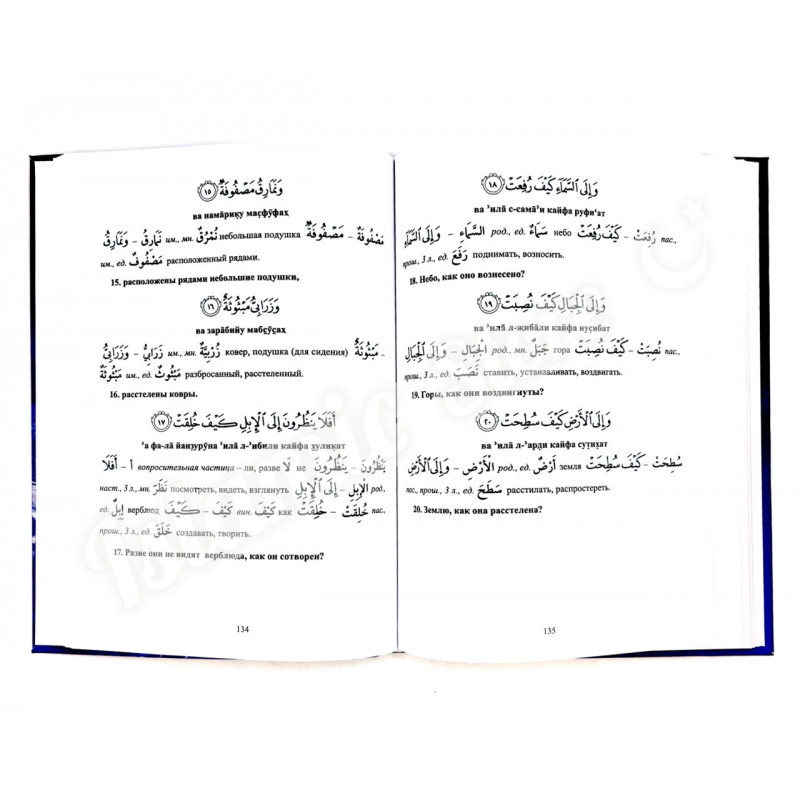 وَنَمَارِقُ مَصْفُوفَةٌ ۝١٥
ва нама̄рик̣у мас̣фӯфах̣
مَصْفُوفَةٌ – مَصْفُوفَةٌ небольшая подушка نُمْرُقٌ им., мн. نَمَارِقُ – وَنَمَارِقُ
им., ед. مَصْفُوفٌ расположенный рядами.
15. расположены рядами небольшие подушки,
وَزَرَابِيُّ مَبْثُوثَةٌ ۝١٦
ва зара̄бийу мабс̱ӯс̱ах̣
مَبْثُوثَةٌ – ковер, подушка (для сидения) زُرْبِيَّةٌ им., мн. زَرَابِيُّ – وَزَرَابِيُّ
им., ед. مَبْثُوثٌ разбросанный, расстеленный. مَبْثُوثَةٌ
16. расстелены ковры.
أَفَلَا يَنظُرُونَ إِلَى ٱلْإِبِلِ كَيْفَ خُلِقَتْ ۝١٧
’а фа-ла̄ йанз̣урӯна ’ила̄ л-’ибили кайфа х̮улик̣ат
أَفَلَا – أ вопросительная частица – ли, разве لَا не يَنْظُرُونَ – يَنظُرُونَ
наст., 3 л., мн. نَظَرَ посмотреть, видеть, взглянуть إِلَى ٱلْإِبِلِ – الْإِبِلِ род.,
ед. إِبِلٌ верблюд كَيْفَ – كَيْفَ вин. كَيْفَ как خُلِقَتْ – خُلِقَتْ пас.,
прош., 3 л., ед. خَلَقَ создавать, творить.
17. Разве они не видят верблюда, как он сотворен?
134
وَإِلَى ٱلسَّمَآءِ كَيْفَ رُفِعَتْ ۝١٨
ва ’ила̄ с-сама̄’и кайфа руфи‘ат
وَإِلَى ٱلسَّمَآءِ – السَّمَاءِ род., ед. سَمَاءٌ небо كَيْفَ رُفِعَتْ – رُفِعَتْ пас.,
прош., 3 л., ед. رَفَعَ поднимать, возносить.
18. Небо, как оно вознесено?
وَإِلَى ٱلْجِبَالِ كَيْفَ نُصِبَتْ ۝١٩
ва ’ила̄ л-җиба̄ли кайфа нус̣ибат
وَإِلَى ٱلْجِبَالِ – الْجِبَالِ род., мн. جَبَلٌ гора كَيْفَ نُصِبَتْ – نُصِبَتْ пас.,
прош., 3 л., ед. نَصَبَ ставить, устанавливать, воздвигать.
19. Горы, как они воздвигнуты?
وَإِلَى ٱلْأَرْضِ كَيْفَ سُطِحَتْ ۝٢٠
ва ’ила̄ л-’ард̣и кайфа сут̣их̣ат
وَإِلَى ٱلْأَرْضِ – الْأَرْضِ род., ед. أَرْضٌ земля كَيْفَ سُطِحَتْ – سُطِحَتْ
пас., прош., 3 л., ед. سَطَحَ расстилать, распростереть.
20. Землю, как она расстелена?
135